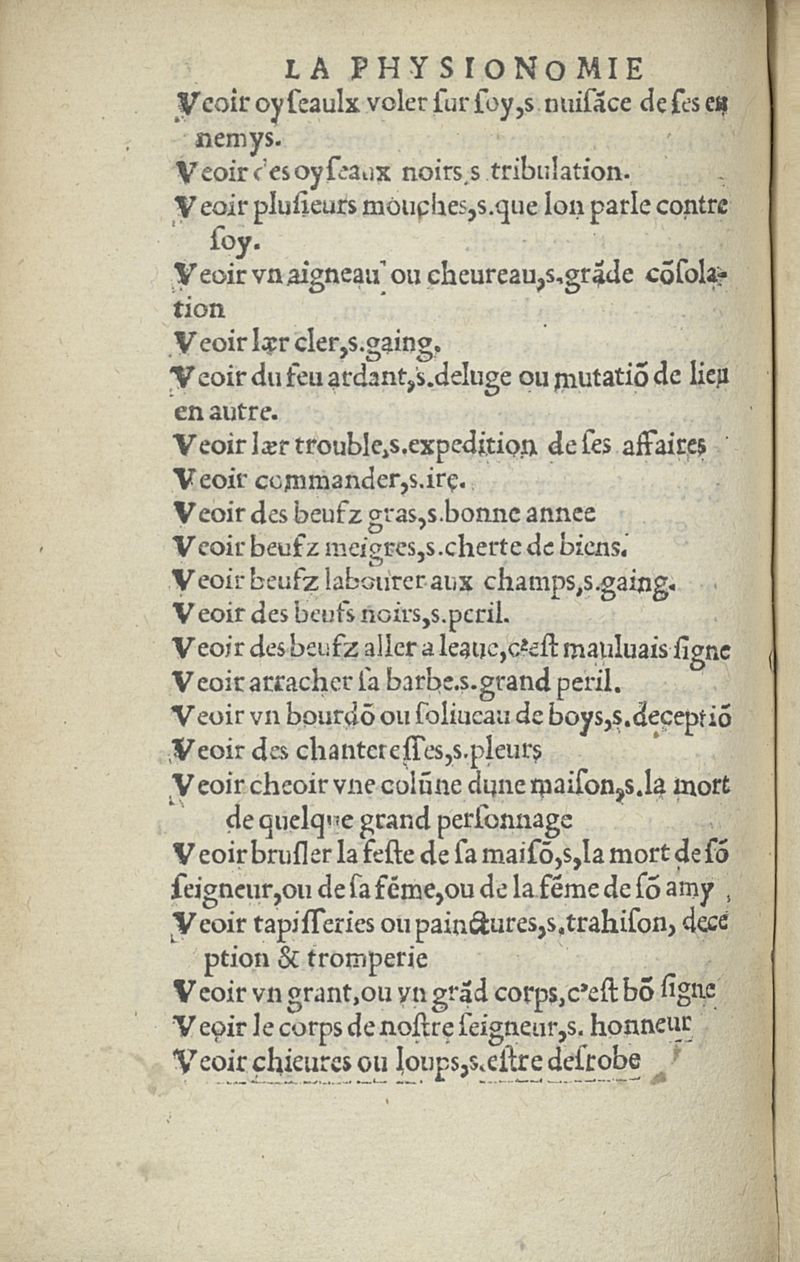 LA PHYSIONOMIE
Veoir oyſeaulx voler ſur ſoy,s. nuiſãce de ſes en
nemys.
Veoir des oyſeaux noirs,s tribulation.
Veoir pluſieurs mouches,s.que lon parle contre
ſoy.
Veoir vn aigneau ou cheureau,s.grãde cõſola-
tion
Veoir lær cler,s.gaing.
Veoir du feu ardant,s.deluge ou mutatiõ de lieu
en autre.
Veoir lær trouble,s.expedition de ſes affaires
Veoir commander,s.ire.
Veoir des beufz gras,s.bonne annee
Veoir beufz meigres,s.cherte de biens.
Veoir beufz labourer aux champs,s.gaing.
Veoir des beufs noirs,s.peril.
Veoir des beufz aller a leaue,c'eſt mauluais ſigne
Veoir arracher ſa barbe.s.grand peril.
Veoir vn bourdõ ou ſoliueau de boys,s.deceptiõ
Veoir des chantereſſes,s.pleurs
Veoir cheoir vne colũne dune maiſon,s.la mort
de quelque grand perſonnage
Veoir bruſler la feſte de ſa maiſõ,s,la mort de ſõ
ſeigneur,ou de ſa fẽme,ou de la fẽme de ſõ amy ,
Veoir tapiſſeries ou painctures,s.trahiſon, dece
ption & tromperie
Veoir vn grant,ou vn grãd corps,c'eſt bõ ſigne
Veoir le corps de noſtre ſeigneur,s. honneur
Veoir chieures ou loups,s.eſtre deſrobe